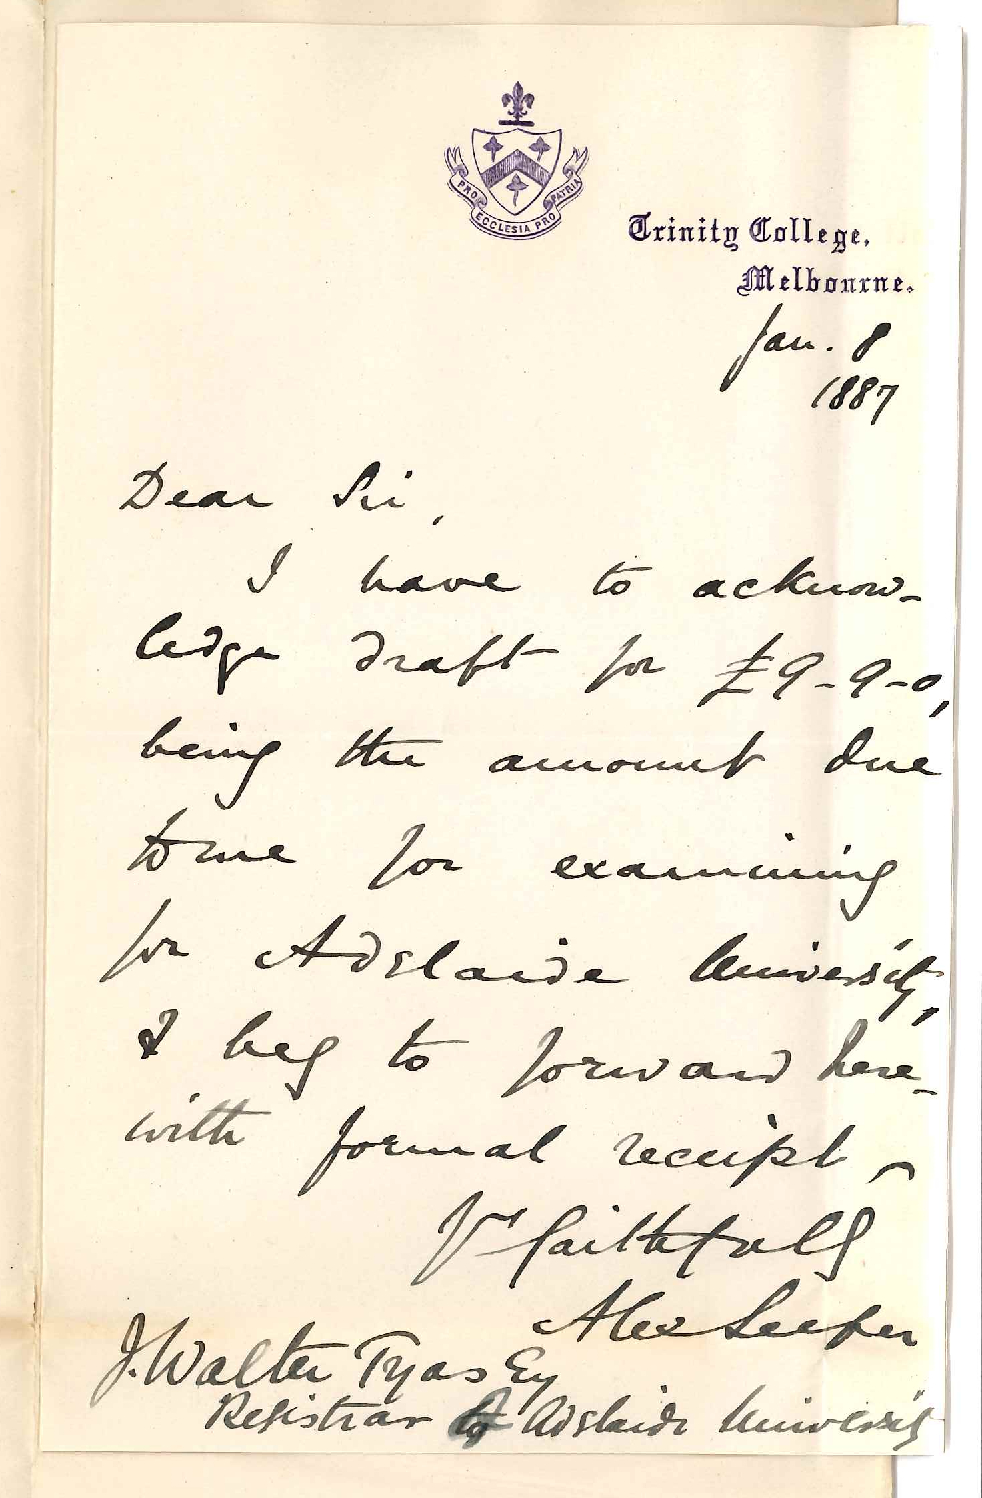 PRO ECCLESIA PRO PATRIA
Trinity College,
Melbourne.
Jan. 8
1887
Dear Sir,
I have to acknow-
ledge draft for £9-9-0,
being the amount due
to me for examining
for Adelaide University,
& beg to forward here-
with formal receipt
Yrs faithfully
Alex Leeper
J. Walter Tyas Esq
Registrar of Adelaide University